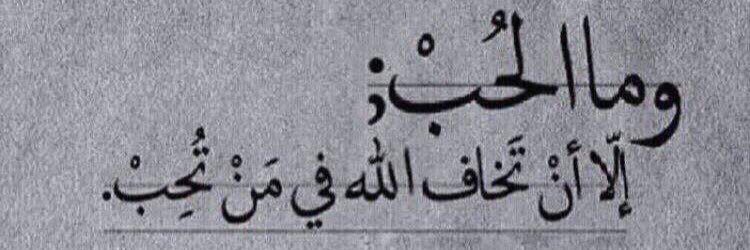 وما الحُبْ؛
إلّا أنْ تَخاف الله في مَنْ تُحِبْ.